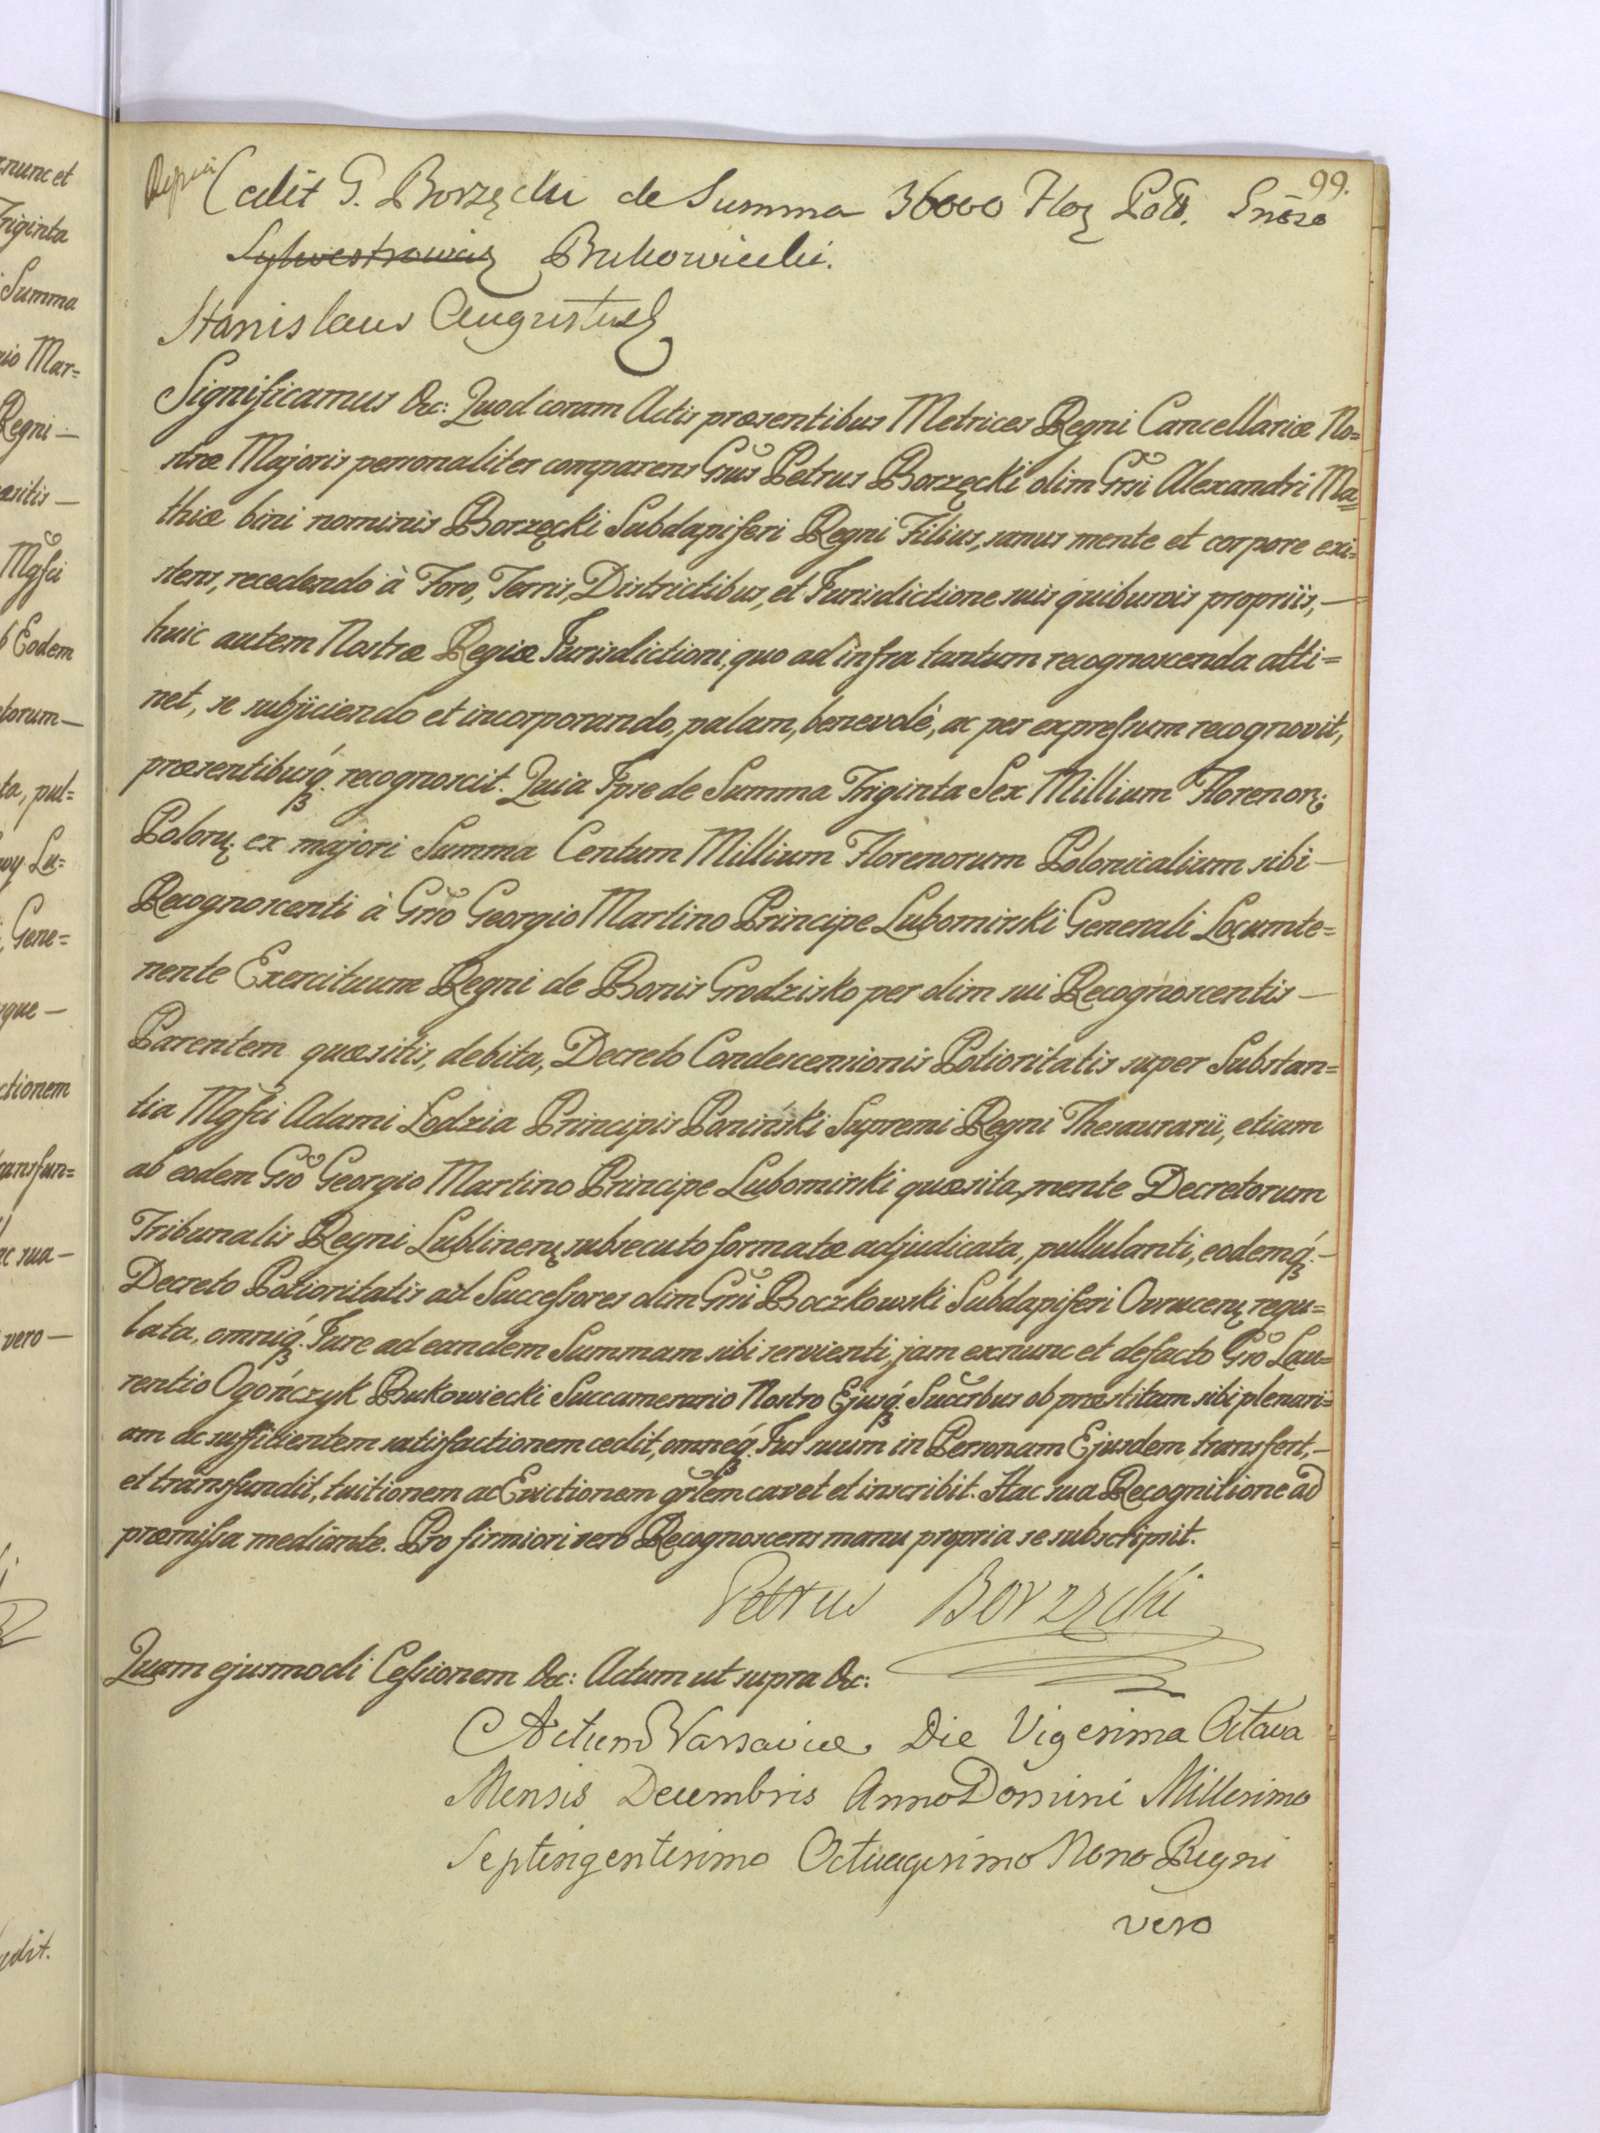 99.
Cedit G. Borzęcki de Summa 36000 Flor Poll. Gnoso
Sylwestrowicz Bukowiecki.
Stanislaus Augustus
Significamus &c: Quod coram Actis præsentibus Metrices Regni Cancellariæ No=
stræ Majoris personaliter comparens Grsus Petrus Borzęcki olim Grsi Alexandri Ma=
thiæ bini nominis Borzęcki Subdapiferi Regni Filius, sanus mente et corpore exi=
stens, recedendo à Foro, Terris, Districtibus, et Jurisdictione suis quibusvis propriis, —
huic autem Nostræ Regiæ Jurisdictioni, quo ad infra tantum recognoscenda atti=
net, se subjiciendo et incorporando, palam, benevolè, ac per expressum recognovit,
præsentibusq́3. recognoscit. Quia Ipse de Summa Triginta Sex Millium Florenor;
Polorų; ex majori Summa Centum Millium Florenorum Polonicalium sibi —
Recognoscenti à Grso Georgio Martino Principe Lubomirski Generali Locumte=
nente Exercituum Regni de Bonis Grodzisko per olim sui Recognoscentis —
Parentem quæsitis, debita, Decreto Condescensionis Potioritatis super Substan=
tia Mgfci Adami Lodzia Principis Poniński Supremi Regni Thesaurarii, etiam
ab eodem Gso Georgio Martino Principe Lubomirski quæsita, mente Decretorum
Tribunalis Regni Lublinenų subsecuto formatæ adjudicata, pullulanti, eodemq́3. —
Decreto Potioritatis ad Successores olim Grsi Boczkowski Subdapiferi Ovrucenų regu=
lata, omniq́3. Jure ad eandem Summam sibi servienti, jam exnunc et defacto Gso Lau=
rentio Ogończyk Bukowiecki Succamerario Nostro Ejusq́3. Succrbus ob præstitam sibi plenari=
am ac sufficientem satisfactionem cedit, omneq́3. Jus suum in Personam Ejusdem transfert, —
et transfundit, tuitionem ac Evictionem gnrlem cavet et inscribit. Hac sua Recognitione ad
præmissa mediante. Pro firmiori vero Recognoscens manu propria se subscripsit.
Petrus Borzęcki
Quam ejusmodi Cessionem &c: Actum ut supra &c:
Actum Varsaviæ Die Vigesima Octava
Mensis Decembris Anno Domini Millesimo
Septingentesimo Octuagesimo Nono Regni
vero